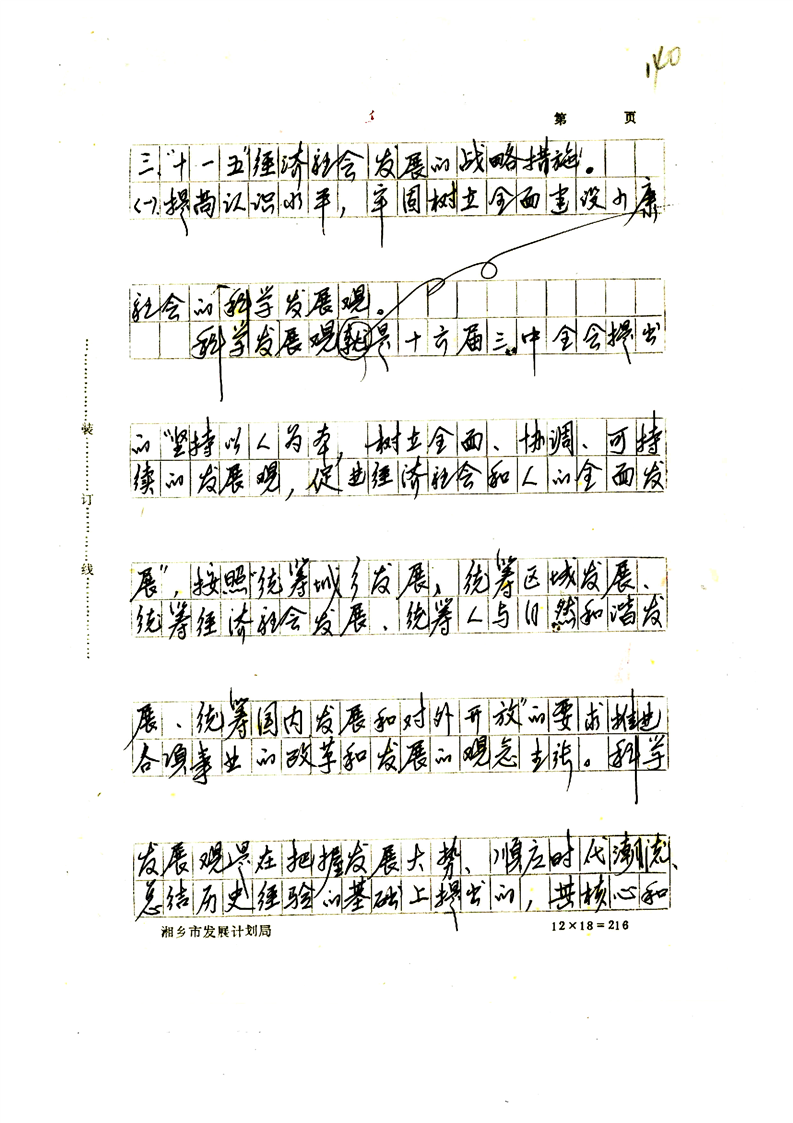 140
第 页
三、"十一五"经济社会发展的战略措施。
㈠提高认识水平，牢固树立全面建设小康
社会的科学发展观。
科学发展观就是十六届三中全会提出
的"坚持以人为本，树立全面、协调、可持
续的发展观，促进经济社会和人的全面发
展"，按照"统筹城乡发展、统筹区域发展、
统筹经济社会发展、统筹人与自然和谐发
展、统筹国内发展和对外开放"的要求推进
各项事业的改革和发展的观念主张。科学
发展观是在把握发展大势、顺应时代潮流、
总结历史经验的基础上提出的，其核心和
湘乡市发展计划局 12×18=216
装订线